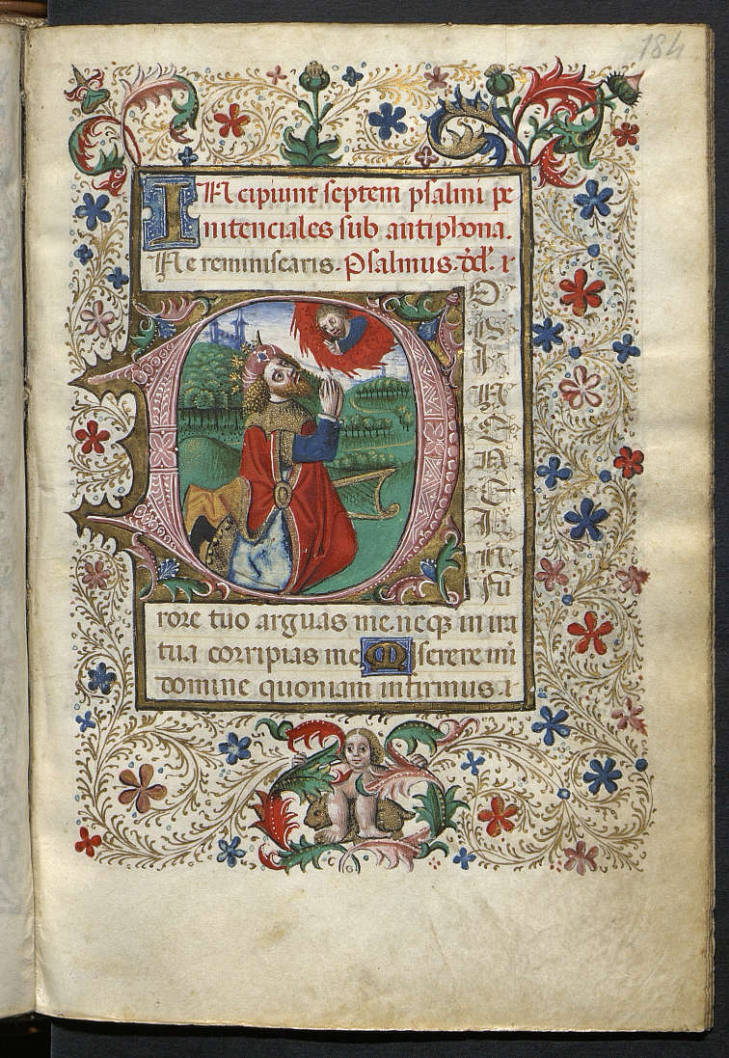 184
IN cipiunt septem psalmi pe
nitenciales sub antiphona.
Ne reminiscaris. Psalmus. dd. i
D
O
M
I
N
E
N
E
I
N
fu
rore tuo arguas me. neq; in ira
tua corripias me Miserere mi
domine quoniam infirmus. i